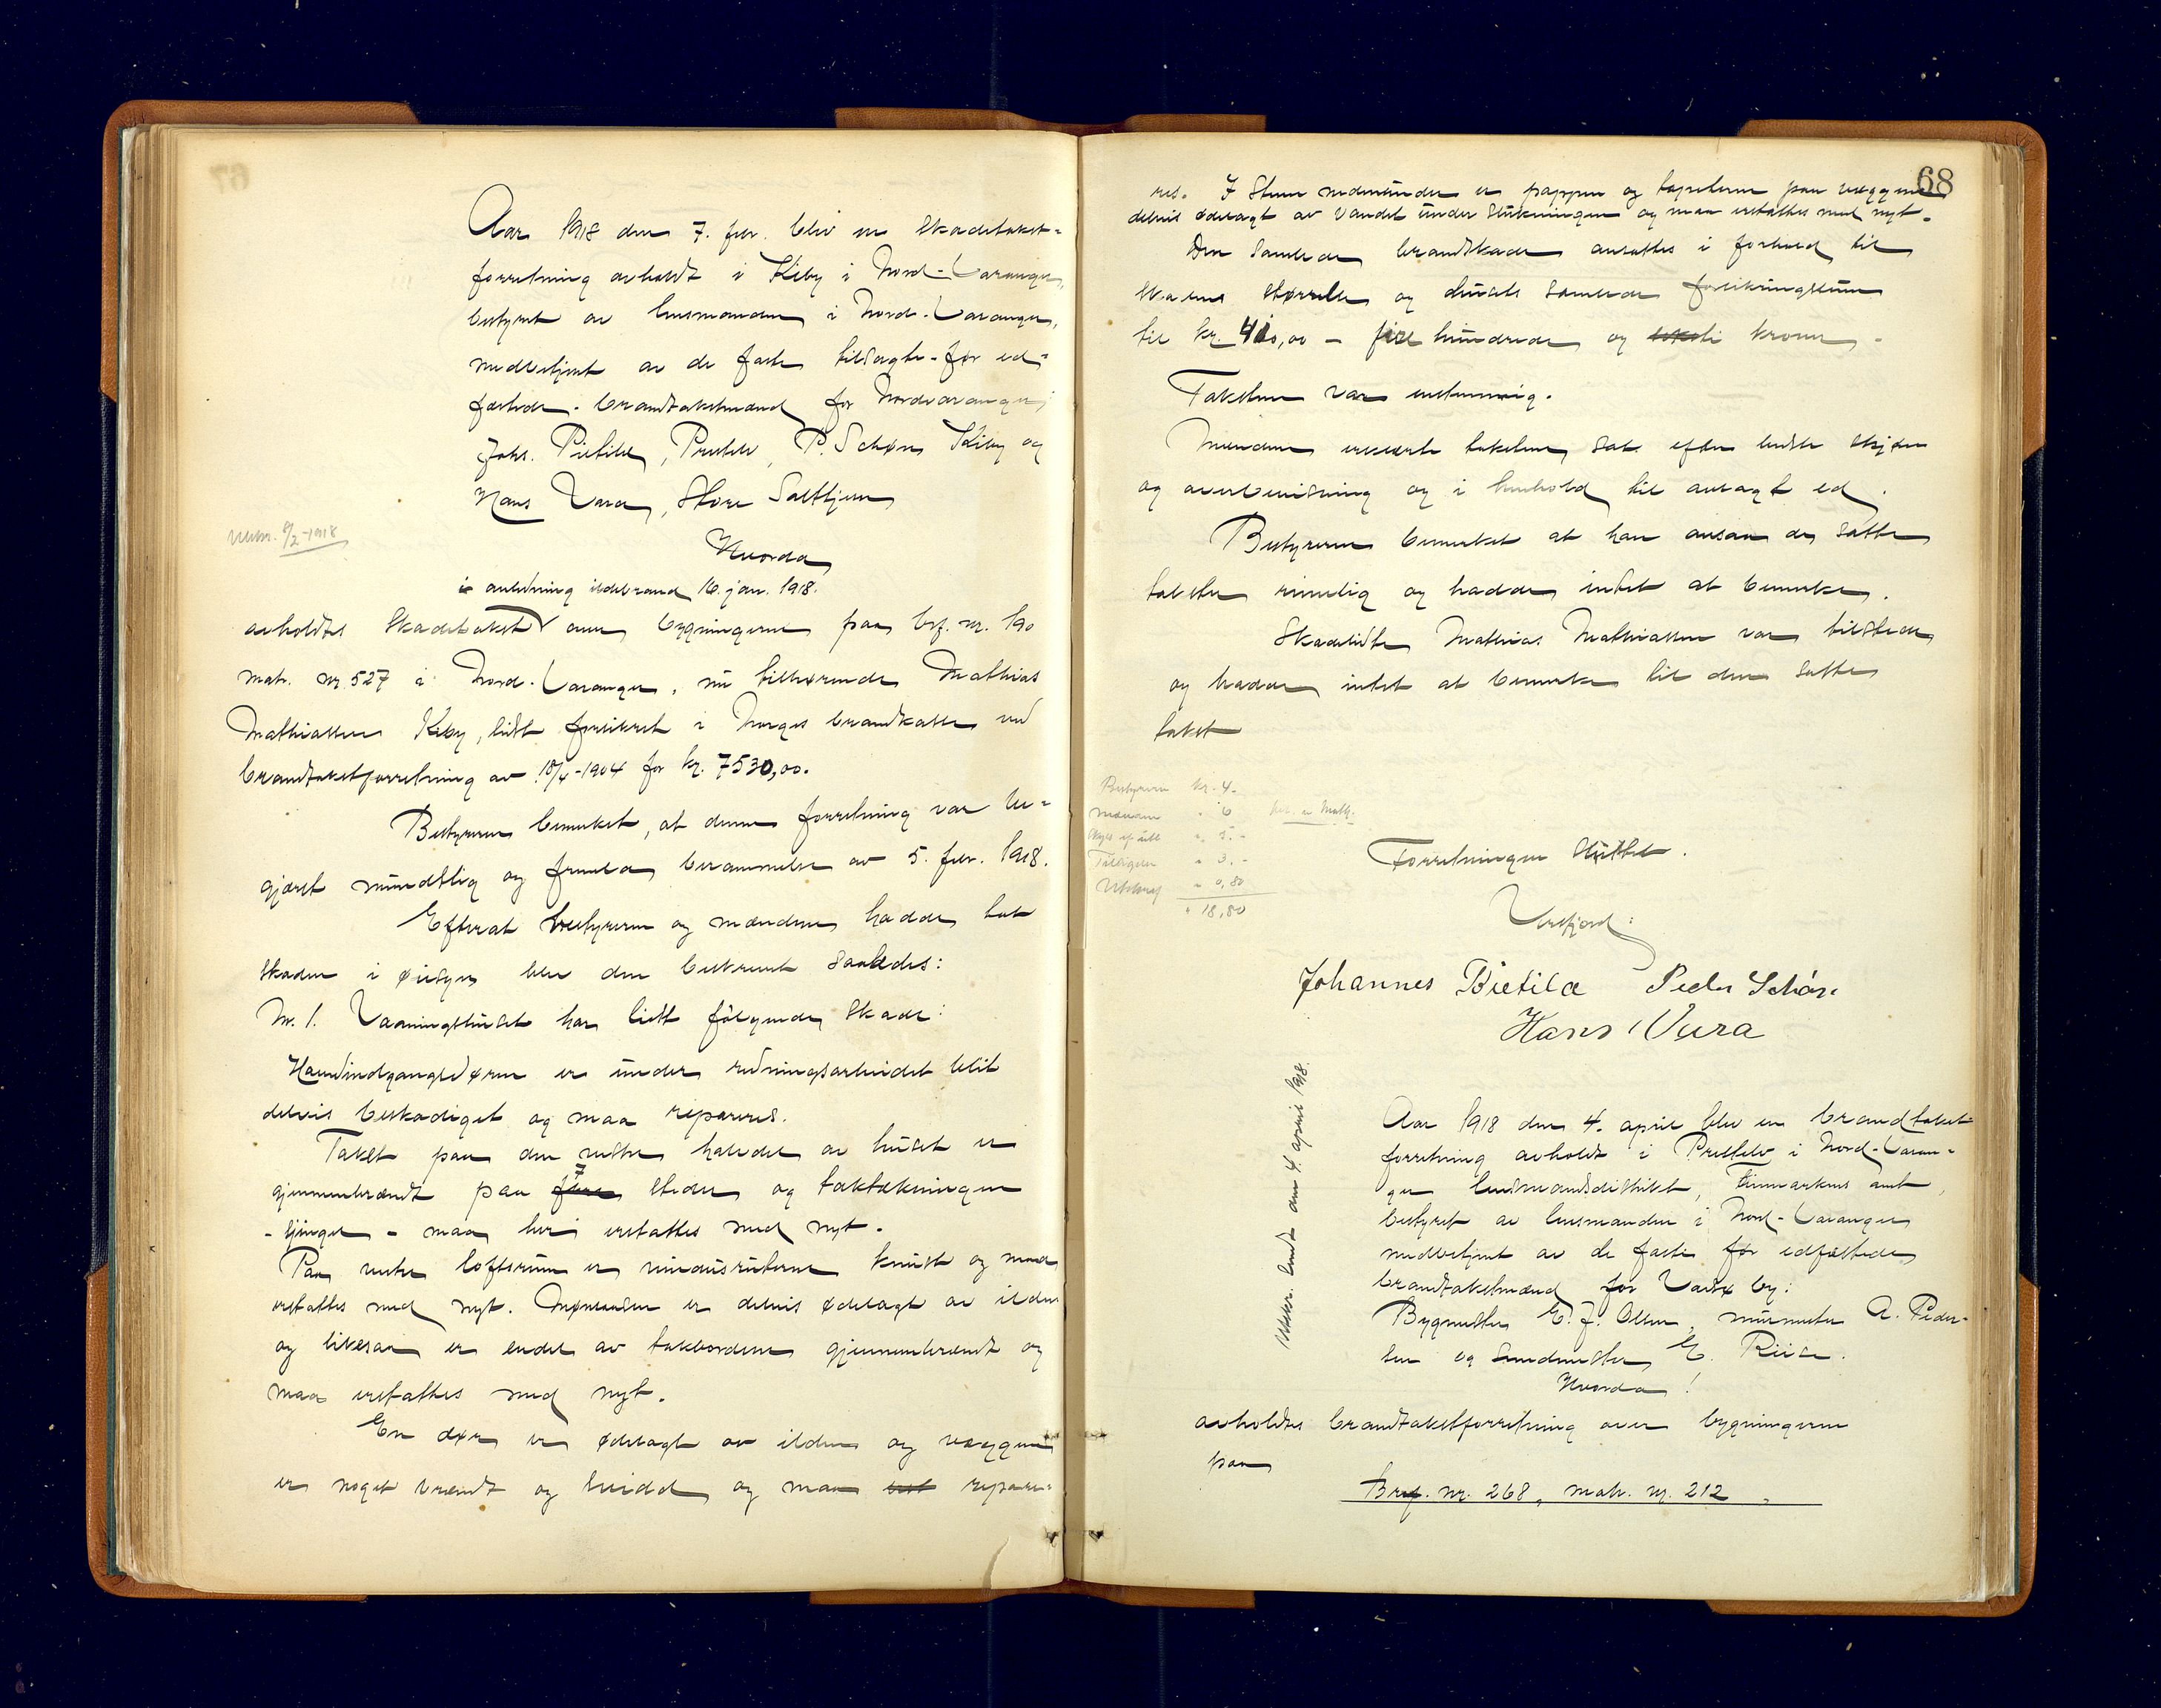 Aar 1918 den 7. febr. blev en skadetakst-
forretning avholdt i Kiby i Nord-Varanger,
bestyret av lensmanden i Nord-Varanger,
medbetjent av de faste tilsagte - før ed-
fæstede - brandtakstmænd for Nordvaranger:
Johs. Pietilæ, Prestelv, P. Schøn, Kiby og
Hans Vara, Store Salttjern
Utskr. 9/2-1918
Hvorda
i anledning ildebrand 16. jan. 1918.
avholdtes skadetakst over bygningerne paa brf. nr. 190
matr. nr. 527 i Nord-Varanger, nu tilhørende Mathias
Mathiassen Kiby, sidst forsikret i Norges brandkasse ved
brandtakstforretning av 18/4-1904 for kr. 7530,00.
Bestyreren bemerket, at denne forretning var be-
gjært mundtlig og fremla berammelse av 5. febr. 1918.
Efterat bestyreren og mændene hadde tat
skaden i øiesyn blev den beskrevet saaledes:
Nr. 1. Vaaningshuset har lidt følgende skade:
Hovedindgangsdøren er under redningsarbeidet blit
delvis beskadiget og maa repareres.
Taket paa den vestre halvdel av huset er
gjennembrændt paa fire 7 steder og taktækningen
- spinger - maa her erstattes med nyt.
Paa vestre loftsrum er vindusruterne knust og maa
erstattes med nyt. Mønsaasen er delvis ødelagt av ilden
og likesaa er endel av takbordene gjennembrændt og
maa erstattes med nyt.
En dør er ødelagt av ilden og væggene
er noget brændt og svidd og maa erst repare-
68
res. I stuen nedenunder er pappen og tapeterne paa væggene
delvis ødelagt av vandet under slukningen og maa erstattes med nyt.
Den samlede brandskade ansattes i forhold til
skadens størrelse og husets samlede forsikringssum
til kr. 410,00 - fire hundrede og ti kroner -
Taksten var enstemmig.
Mændene erklærte taksten sat efter bedste skjøn
og overbevisning og i henhold til avlagt ed.
Bestyreren bemerket at han ansaa den satte
takst rimelig og hadde intet at bemerke.
Skadelidte Mathias Mathiassen var tilstede
og hadde intet at bemerke til den satte
takst
Bestyreren kr. 4.-
Mændene " 6
Skyds " 5.-
" 3.-
Utskrift " 0,80
" 18,80
Forretningen sluttet.
Johannes Pietilæ Peder Schøn
Hans Vara
Utskr. sendt den 4. april 1918.
Aar 1918 den 4. april blev en brandtakst-
forretning avholdt i Prestelv i Nord-Varan-
ger lensmandsdistrikt, Finmarkens amt,
bestyret av lensmanden i Nord-Varanger
medbetjent av de faste før edfæstede
brandtakstmænd for Vadsø by:
Bygmester E. J. Olsen, murmester A. Peder-
sen og smedmester E. Riise.
Hvorda!
avholdtes brandtakstforretning over bygningerne
paa
Brf. nr. 268, matr. nr. 212.